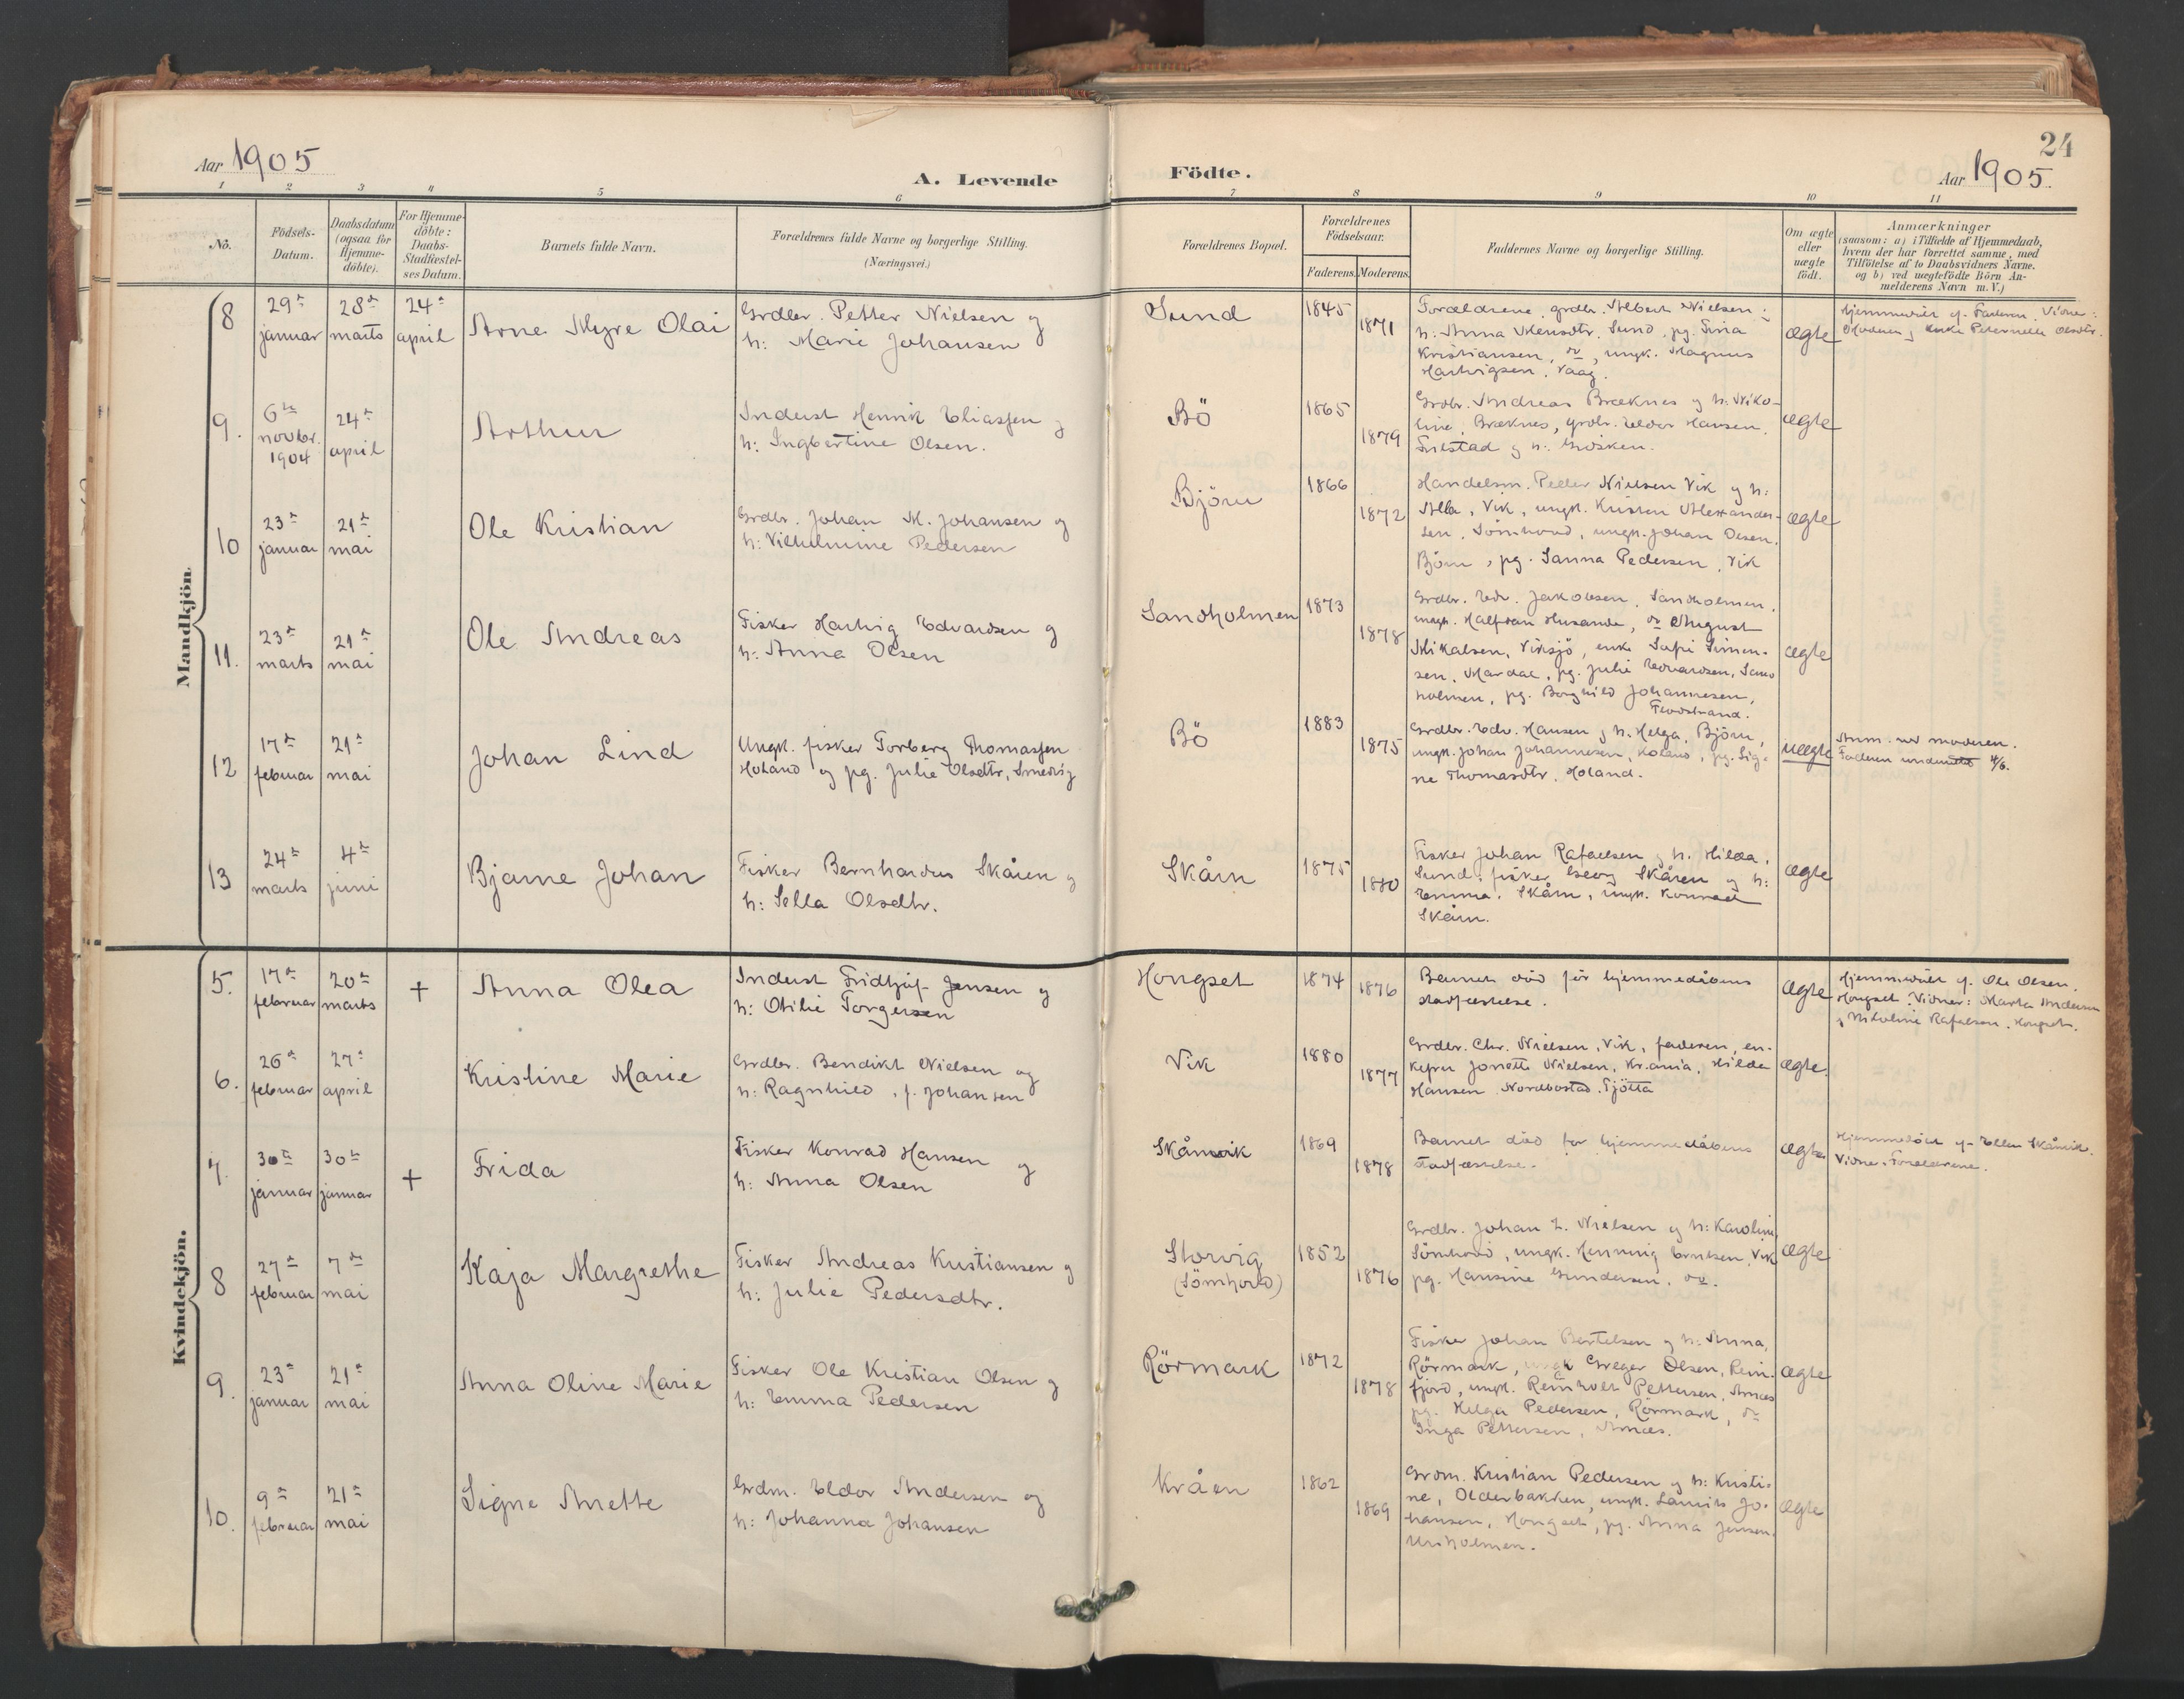 Aar 1905
A. Levende Födte.
24
Aar 1905.
1 2 3 4 5 6 7 8 9 10 11
No.
Födsels-Datum.
Daabsdatum (ogsaa for Hjemme-döbte).
For Hjemme-döbte: Daabs-Stadfæstel-ses Datum.
Barnets fulde Navn.
Forældrenes fulde Navne og borgerlige Stilling. (Næringsvei.)
Forældrenes Bopæl.
Forældrenes Födselsaar.
Faderens. Moderens.
Faddernes Navne og borgerlige Stilling.
Om ægte eller uægte födt.
Anmærkninger
(saasom: a) i Tilfælde af Hjemmedaab,
hvem der har forrettet samme, med
Tilföielse af to Daabsvidners Navne.
og b) ved uægtefödte Börn An-
melderens Navn m.V.)
Mandkjön.
8 29de januar 28de marts 24de april Arne Myre Olai
Grdbr. Petter Nielsen og
h: Marie Johansen
Sund 1845 1871
Forældrene, grdbr. Albert Nielsen,
h. Anna Sund, pg. Tina
Kristiansen, do, ungk. Magnus
Hartvigsen, Vaag.
ægte
9. 6te novbr. 1904 24de april Arthur
Inderst Henrik Eliassen og
h: Ingbertine Olsen.
Bö 1865 1879
Grdbr. Andreas Bræknes og h: Niko-
line, Bræknes, grdbr. Eldor Hansen,
ægte
10 23de januar 21de mai Ole Kristian
Grdbr. Johan M. Johansen og
h: Vilhelmine Pedersen
Björn 1866 1872
Handelsm. Peder Nielsen Vik og h:
Alba, Vik, ungk. Kristen Alexander-
sen, Sömhovd, ungk. Johan Olsen,
Björn, pg. Sanna Pedersen, Vik
ægte
11. 23de marts 21de mai Ole Andreas
Fisker Hartvig Edvardsen og
h: Anna Olsen
Sandholmen 1873 1878
Grdbr. Edv. Jakobsen, Sandholmen,
ungk. Halfdan do August
Mikalsen, Viksjö, enke Simen-
sen, Mardal, pg. Julie Edvardsen, Sand
holmen, pg. Borghild Johannesen,
Flovstrand.
ægte
12 17de februar 21de mai Johan Lind
Ungk. fisker Torberg Thomassen
Holand og pg. Julie Olsdtr, Smedvig
Bö 1883 1875
Grdbr. Edv. Hansen og h. Helga, Björn,
ungk. Johan Johannesen, Holand, pg. Sig-
ne Thomasdtr, Holand.
uægte
Anm. ved moderen.
Faderen underrettet 4/6.
13 24de marts 4de juni Bjarne Johan
Fisker Bernhardus Skåren og
h: Sella Olsdtr.
Skårn 1875 1880
Fisker Johan Rafaelsen og h. Hilda,
Sund, fisker Georg Skåren og h:
Emma, Skårn, ungk. Konrad
Skårn.
ægte
Kvindekjön.
5. 17de februar 20de marts + Anna Olea
Inderst Fridtjof Jensen og
h: Otilie Torgersen
Hongset 1874 1876
Barnet död för hjemmedåbens
stadfæstelse.
ægte
Hjemmedöbt af Ole Olsen,
Hongset. Vidner: Marta Andersen
og Nikoline Rafaelsen, Hongset.
6. 26de februar 27de april Kristine Marie
Grdbr. Bendikt Nielsen og
h: Ragnhild, f. Johansen
Vik 1880 1877
Grdbr. Chr. Nielsen, Vik, faderen, en-
kefru Jonette Nielsen, Kr.ania, Hilda
Hansen Nordbostad, Tjötta
ægte.
7. 30te januar 30te januar + Frida
Fisker Konrad Hansen og
h: Anna Olsen
Skåmvik 1869 1878
Barnet död for hjemmedåbens
stadfæstelse.
ægte
Hjemmedöbt af Ellen Skåmvik.
Vidne: Forældrene.
8 27de februar 7de mai Kaja Margrethe
Fisker Andreas Kristiansen og
h: Julie Pedersdtr.
Storvig
(Sömhovd)
1852 1876
Grdbr. Johan L. Nielsen og h: Karoline
Sömhovd, ungk. Henning Berntsen, Vik
pg. Hansine Gundersen, do.
ægte
9. 23de januar 21de mai Anna Oline Marie
Fisker Ole Kristian Olsen og
h: Emma Pedersen
Rörmark 1872 1878
Fisker Johan Bertelsen og h: Anna,
Rörmark, ungk Greger Olsen, Rein-
fjord, ungk. Reinholt Pettersen, Arnæs
pg. Helga Pedersen, Rörmark, do
Inga Pettersen, Arnæs.
ægte
10. 9de februar 21de mai Signe Anette
Grdm. Eldor Andersen og
h: Johanna Johansen
Kråen 1862 1869
Grdm. Kristian Pedersen og h: Kristi-
ne, Olderbakken, ungk. Laurits Jo-
hansen, Hongset, pg. Anna Jensen,
Urdholmen.
ægte